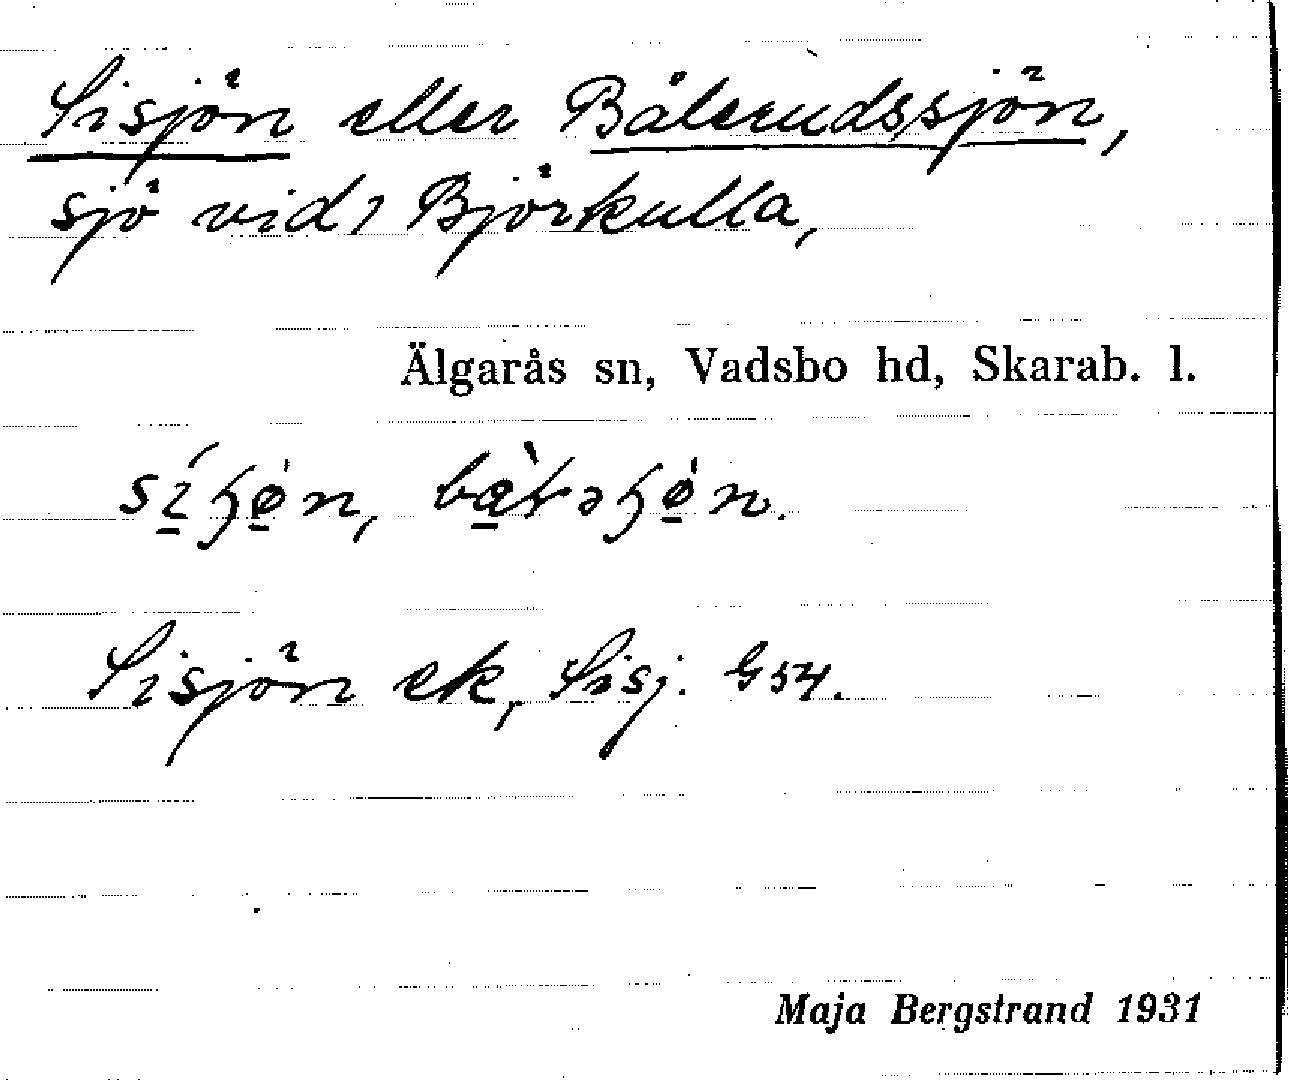 Sisjön eller Bålerudssjön,
sjö vid Björkulla,
Älgarås sn, Vadsbo hd, Skarab. l.
Sisjön ek, Sisj. G 54.
Maja Bergstrand 1931